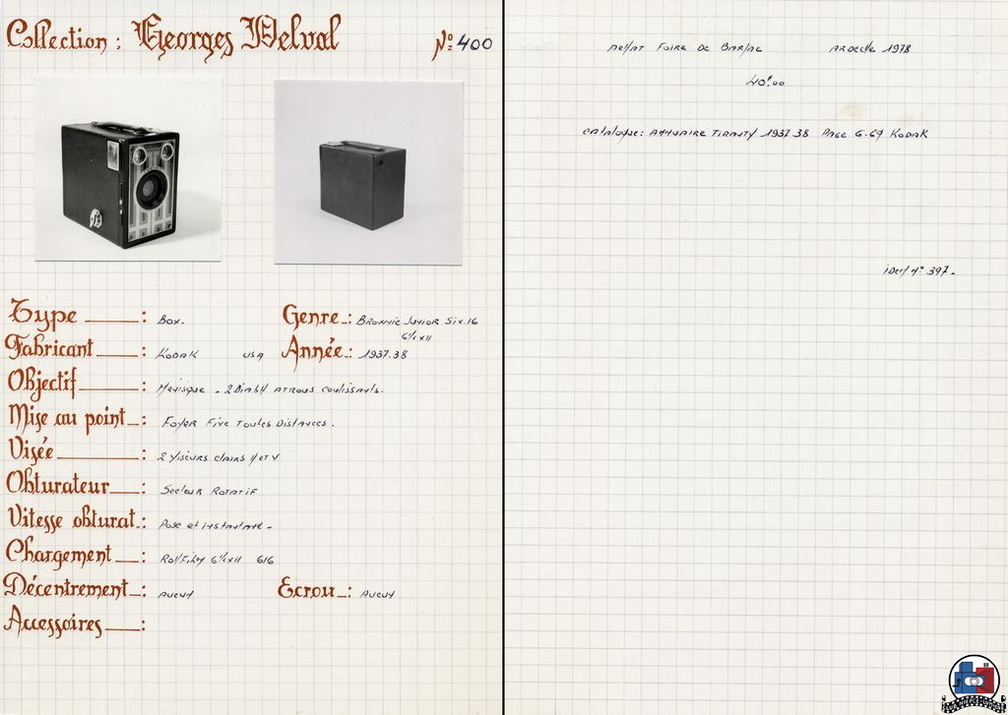 Collection : Georges Delval Nº 400
Type : Box.
Genre : Brownie Junior Six.16
6½x11
Fabricant : Kodak USA
Année : 1937.38
Objectif : Ménisque - 2 Diaph A trous coulissants.
Mise au point : Foyer Fixe Toutes Distances.
Visée : 2 Viseurs clairs H et V
Obturateur : Secteur Rotatif
Vitesse obturat. : Pose et instantané -
Chargement : RollFilm 6½x11 616
Décentrement : Aucun
Ecrou : Aucun
Accessoires :
Achat Foire de Barjac Ardèche 1978
40F00
catalogue: Annuaire Tiranty 1937.38 Page G.69 Kodak
n° 397.